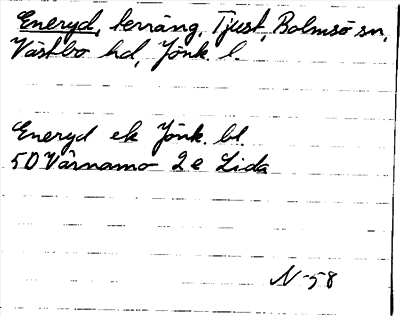 Eneryd, terräng, Tjust, Bolmsö sn,
Västbo hd, Jönk. l.
Eneryd ek Jönk. bl.
5D Värnamo 2e Lida
N-58